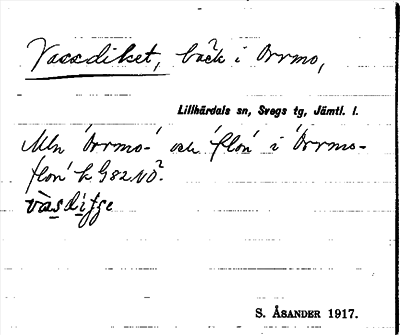 Vassdiket, bäck i Orrmo,
Lillhärdals sn, Svegs tg, Jämtl. l.
Mln 'Orrmo-' och 'flon' i 'Orrmo-
flon' k G82 NO.
vàsditge
S. ÅSANDER 1917.